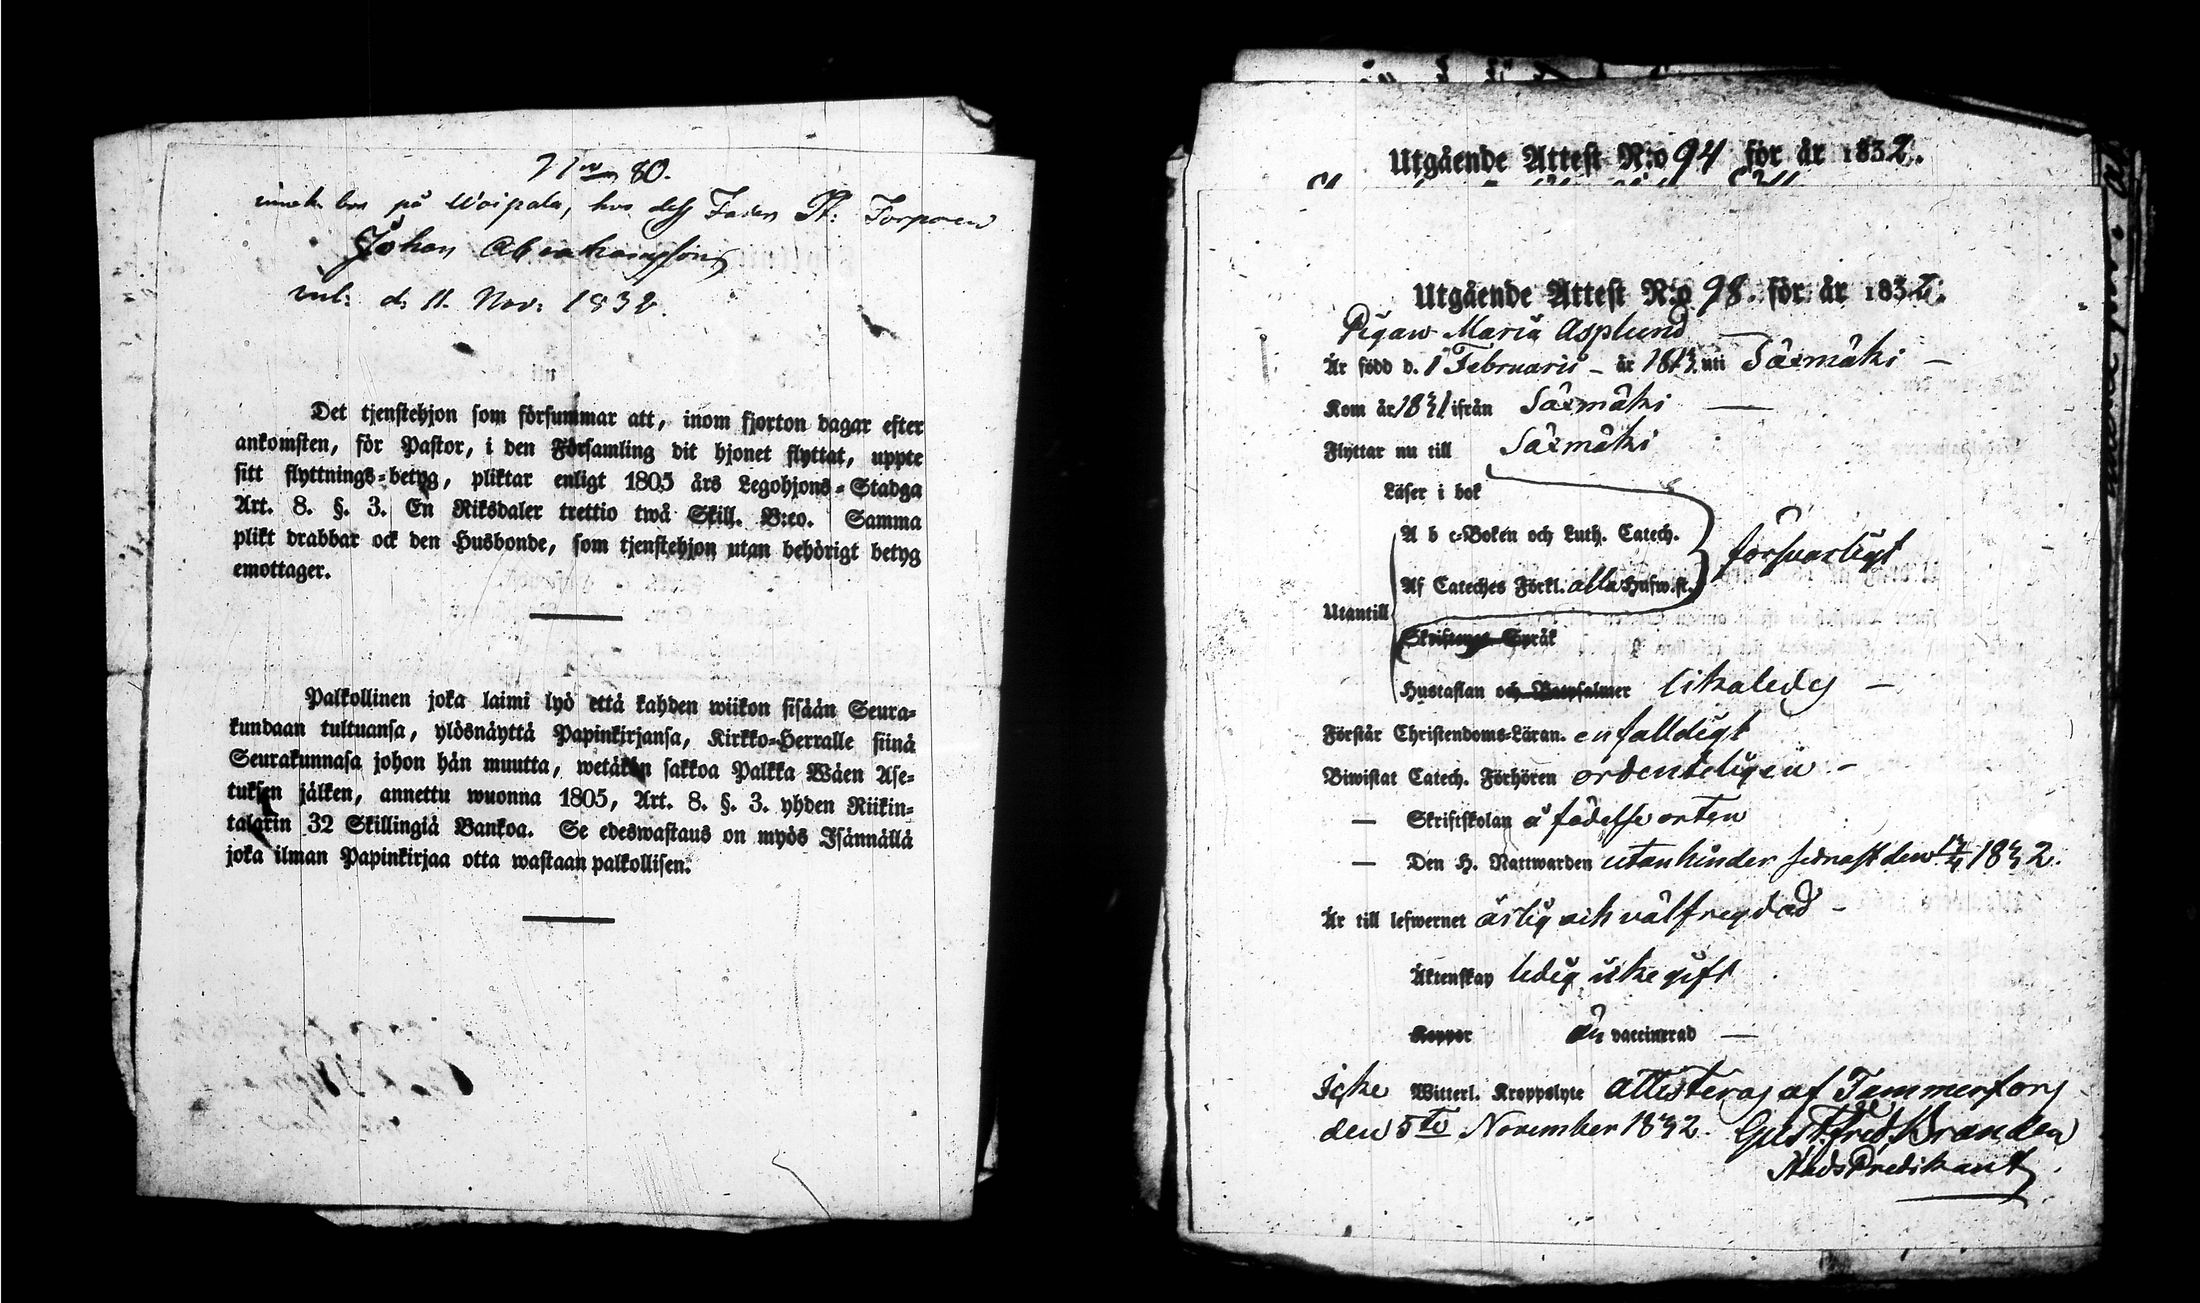 N:ro 80.
på Woipala, hos dess Fader St: Torparen
Johan Abrahamsson
d: 11. Nov: 1832.
Det tjenstehjon som försummar att, inom fjorton dagar efter
ankomsten, för Pastor, i den Församling dit hjonet flyttat, uppte
sitt flyttnings-betyg, pliktar enligt 1805 års Legohjons-Stadga
Art. 8. §. 3. En Riksdaler trettio twå Skill. B:co. Samma
plikt drabbar ock den Husbonde, som tjenstehjon utan behörigt betyg
emottager.
Palkollinen joka laimi lyö että kahden wiikon sisään Seura-
kundaan tultuansa, ylösnäyttä Papinkirjansa, Kirkko-Herralle siinä
Seurakunnasa johon hän muutta, wetäkön sakkoa Palkka Wäen Ase-
tuksen jälken, annettu wuonna 1805, Art. 8. §. 3. yhden Riikin-
talarin 32 Skillingiä Bankoa. Se edeswastaus on myös Isännällä
joka ilman Papinkirjaa otta wastaan palkollisen.
Utgående Attest N:o 94 för år 1832.
Utgående Attest N:o 98. för år 1832.
Pigan Maria Asplund
Är född d. 1 Februarii – år 1813 uti Säxmäki –
Kom år 1831 ifrån Säxmäki —
Flyttar nu till Säxmäki
Läser i bok
A b c-Boken och Luth. Catech.
försvarligt
Af Cateches Förkl. alla Hufw.st.
Utantill
Skriftenes Språk
Hustaflan och Botpsalmer likaledes –
Förstår Christendoms-Läran. enfalldigt
Biwistat Catech. Förhören ordenteligen –
— Skriftskolan å födelse orten
— Den H. Nattwarden utan hinder sednast den 1832.
Är till lefwernet ärlig och välfregdad –
Äktenskap ledig icke gift
Koppor är vaccinerad —
Icke Witterl. Kroppslyte attesteras af Tammerfors
den 5te November 1832. Gust. Fred. Brander
Stads Predikant